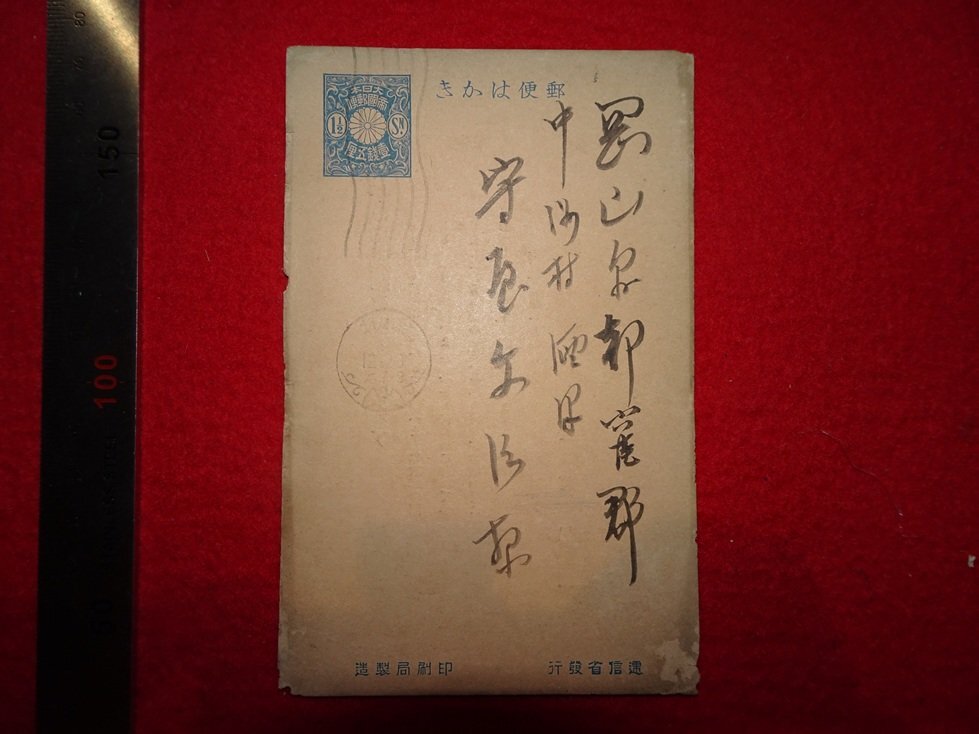 郵便はかき
大日本
帝國郵便
1½ Sn
壹錢五厘
岡山県都窪郡
中洲村
守屋 治 様
遞信省發行 印刷局製造
150
100